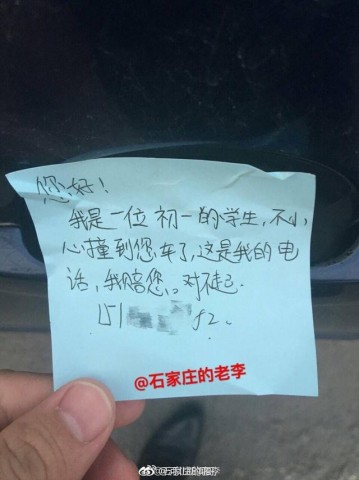 您好!
我是一位初一的学生,不小
心撞到您车了,这是我的电
话,我赔您。对不起.
151 82.
@石家庄的老李